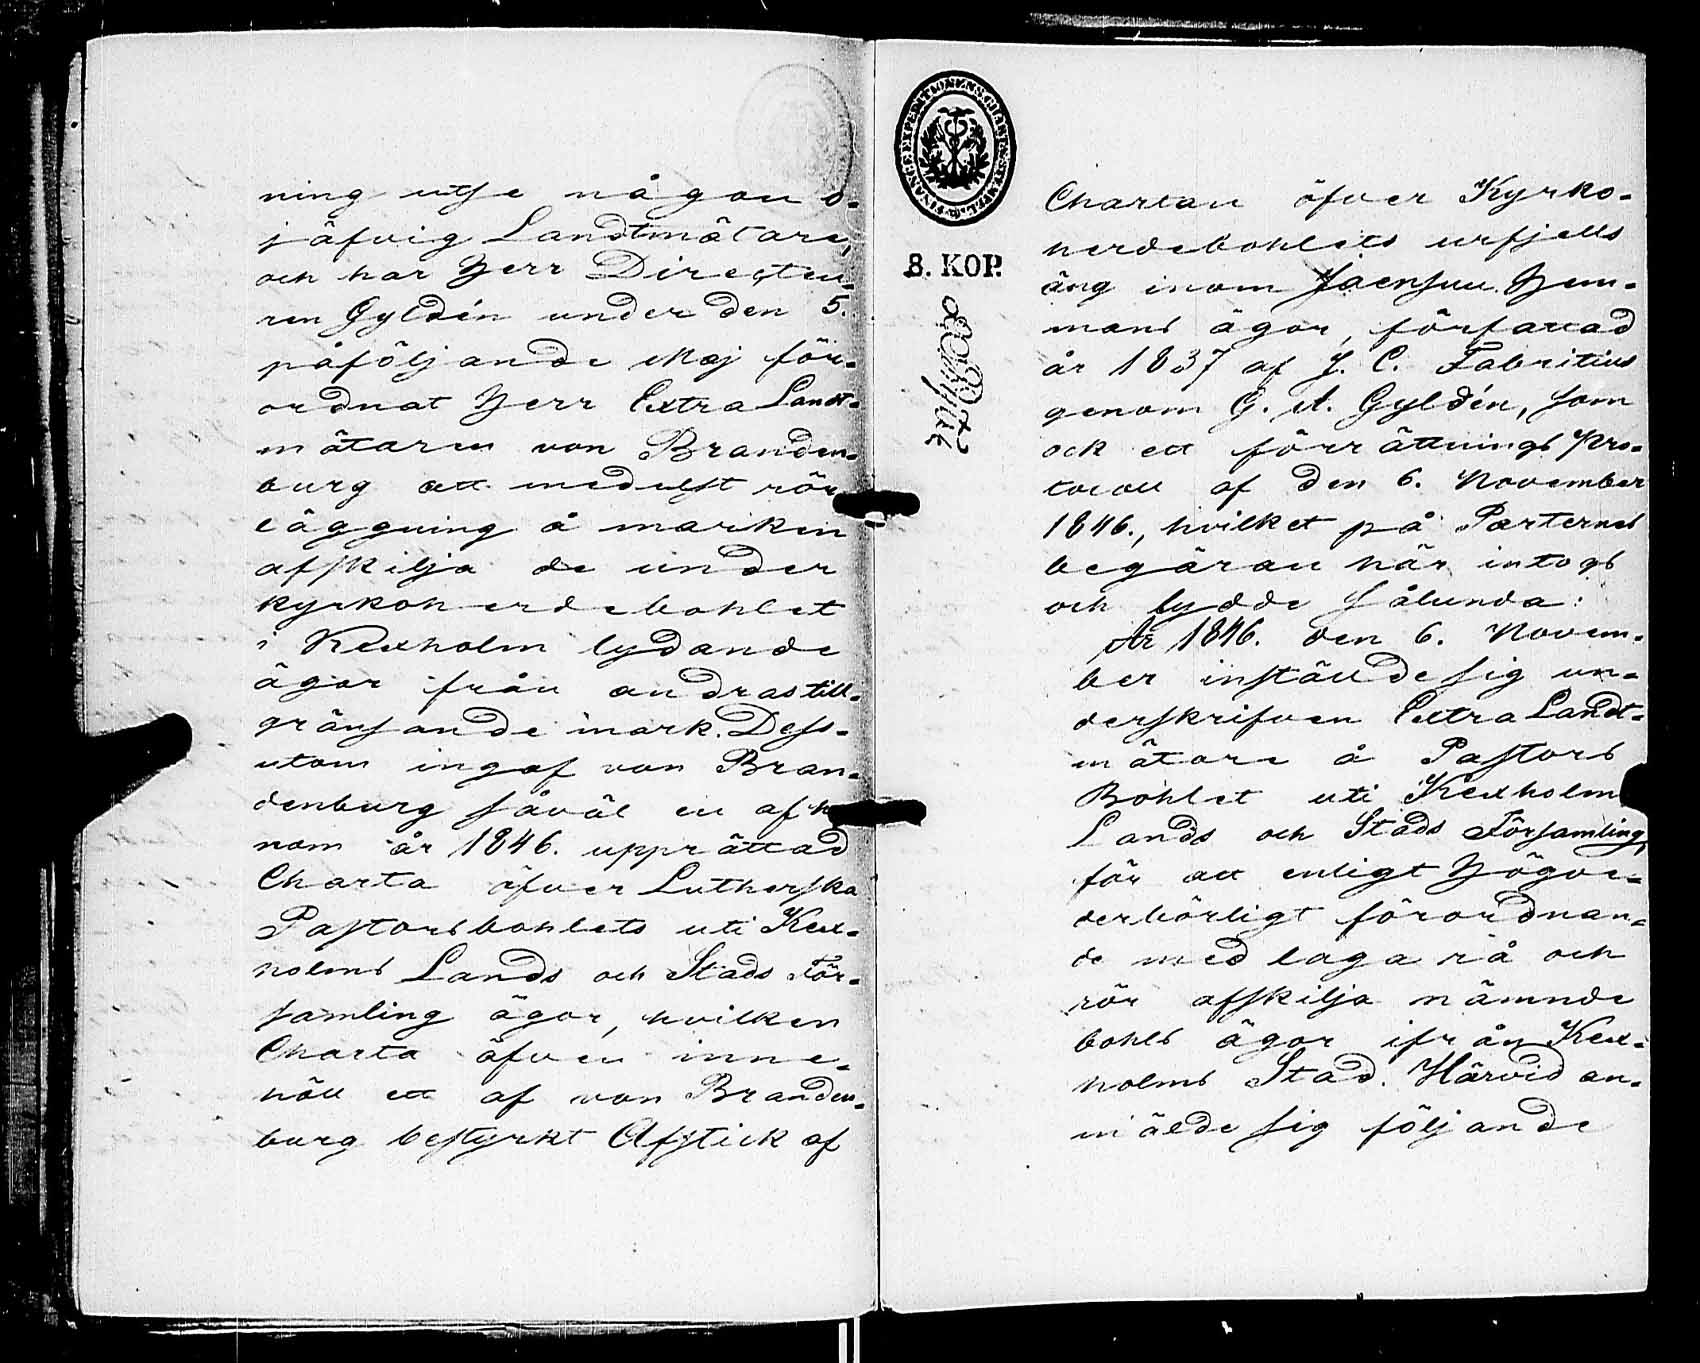 ning utse någon o-
jäfvig Landtmätare,
och har Herr Directeu-
ren Gyldén under den 5.
påföljande Maj för-
ordnat Herr Extra Landt-
mätaren von Branden-
burg att medelst rör
läggning å marken
afskilja de under
kyrkoherdebohlet
i Kexholm lydande
ägor från andras till-
gränsande mark. Dess-
utom ingaf von Bran-
denburg såväl en af ho
nom år 1846. upprättad
Charta öfver Lutherska
Pastorsbohlets uti Kex-
holms Lands och Stads För-
samling ägor, hvilken
Charta äfven inne-
höll ett af von Branden-
burg bestyrkt Afstick af
FINANCE EXPEDITIONENS CHARTÆ STEMPEL
8. KOP.
Chartan öfver Kyrko-
herdebohlets urfjells
äng inom Jaensuu Hem-
mans ägor, författad
år 1837 af J. C. Fabritius
genom G. A. Gyldén, som
ock ett förrättnings Pro-
tocoll af den 6. November
1846., hvilket på Parternes
begäran här intogs
och lydde sålunda:
År 1846. den 6. Novem-
ber inställde sig un-
derskrifven Extra Landt-
mätare å Pastors
Bohlet uti Kexholms
Lands och Stads Församling,
för att enligt Högve-
derbörligt förordnan-
de med laga rå och
rör afskilja nämnde
bohls ägor ifrån Kex-
holms Stad. Härvid an-
mälde sig följande